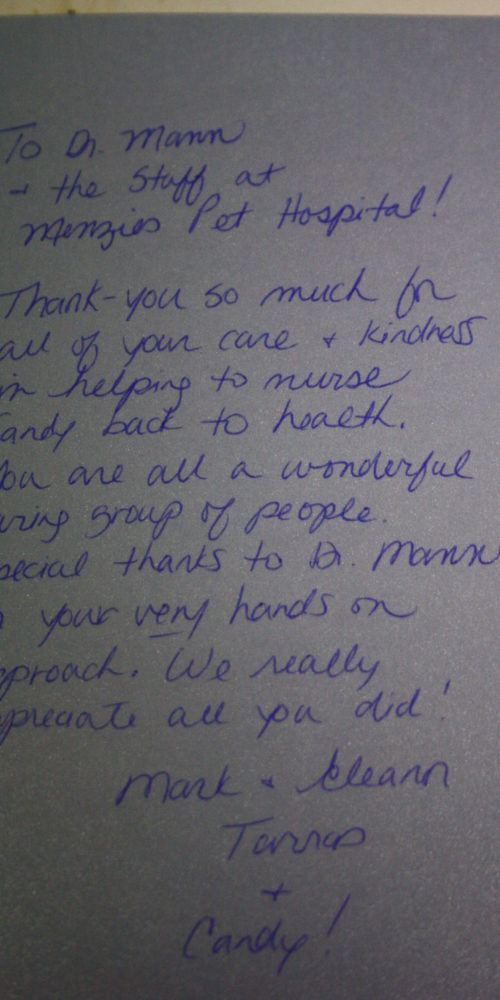 To Dr. Mann
+ the Staff at
Menzies Pet Hospital!
Thank-you so much for
all of your care + kindness
in helping to nurse
andy back to health.
ou are all a wonderful
ring group of people.
pecial thanks to Dr. Mann
your very hands on
proach. We really
preciate all you did!
Mark + Eleanor
+
Candy!